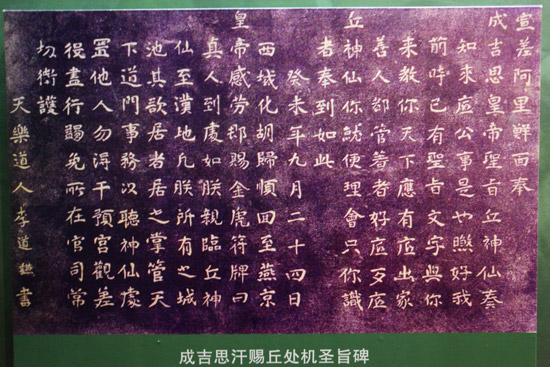 宣差阿里鮮面奉
成吉思皇帝聖旨丘神仙奏
知來底公事是也煞好我
前時已有聖旨文字與你
来教你天下應有底出家
善人都管着者好底歹底
丘神仙你就便理會只你識
者奉到如此
癸未年九月二十四日
西域化胡歸順回至燕京
皇帝感劳即賜金虎符牌曰
真人到處如朕親臨丘神
仙至漢地凡朕所有之城
池其欲居者居之掌管天
下道門事務以聽神仙處
置他人勿得干預宮觀差
役盡行賜免所在官司常
切衛護
天樂道人李道謙書
成吉思汗赐丘处机圣旨碑